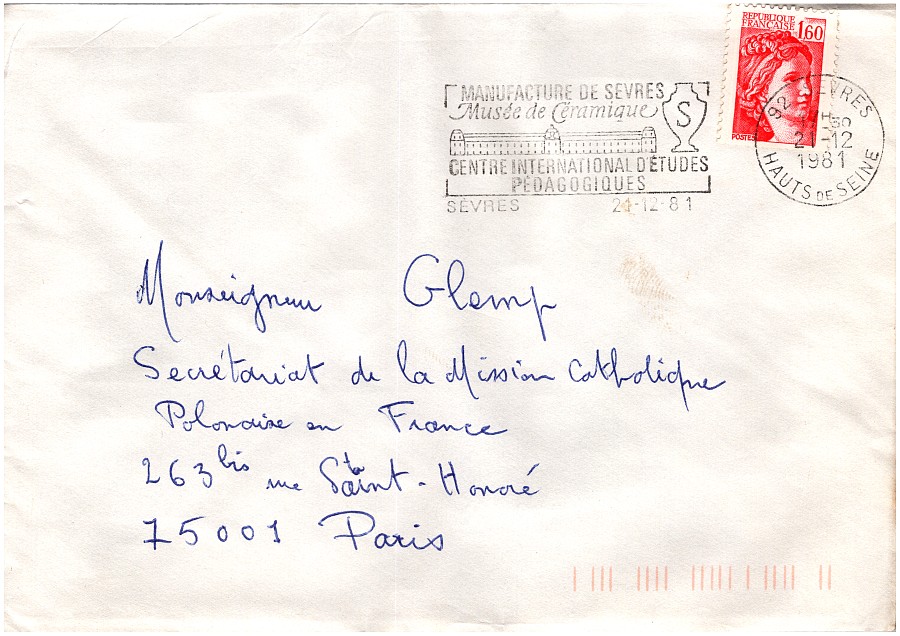 RÉPUBLIQUE
FRANÇAISE 1,60
POSTES
MANUFACTURE DE SEVRES
Musée de Céramique
S
CENTRE INTERNATIONAL D'ÉTUDES
PÉDAGOGIQUES
SÈVRES 21-12-81
92 SEVRES
21-12
1981
HAUTS DE SEINE
Monseigneur Glemp
Secrétariat de la Mission Catholique
Polonaise en France
263 bis rue Saint-Honoré
75001 Paris